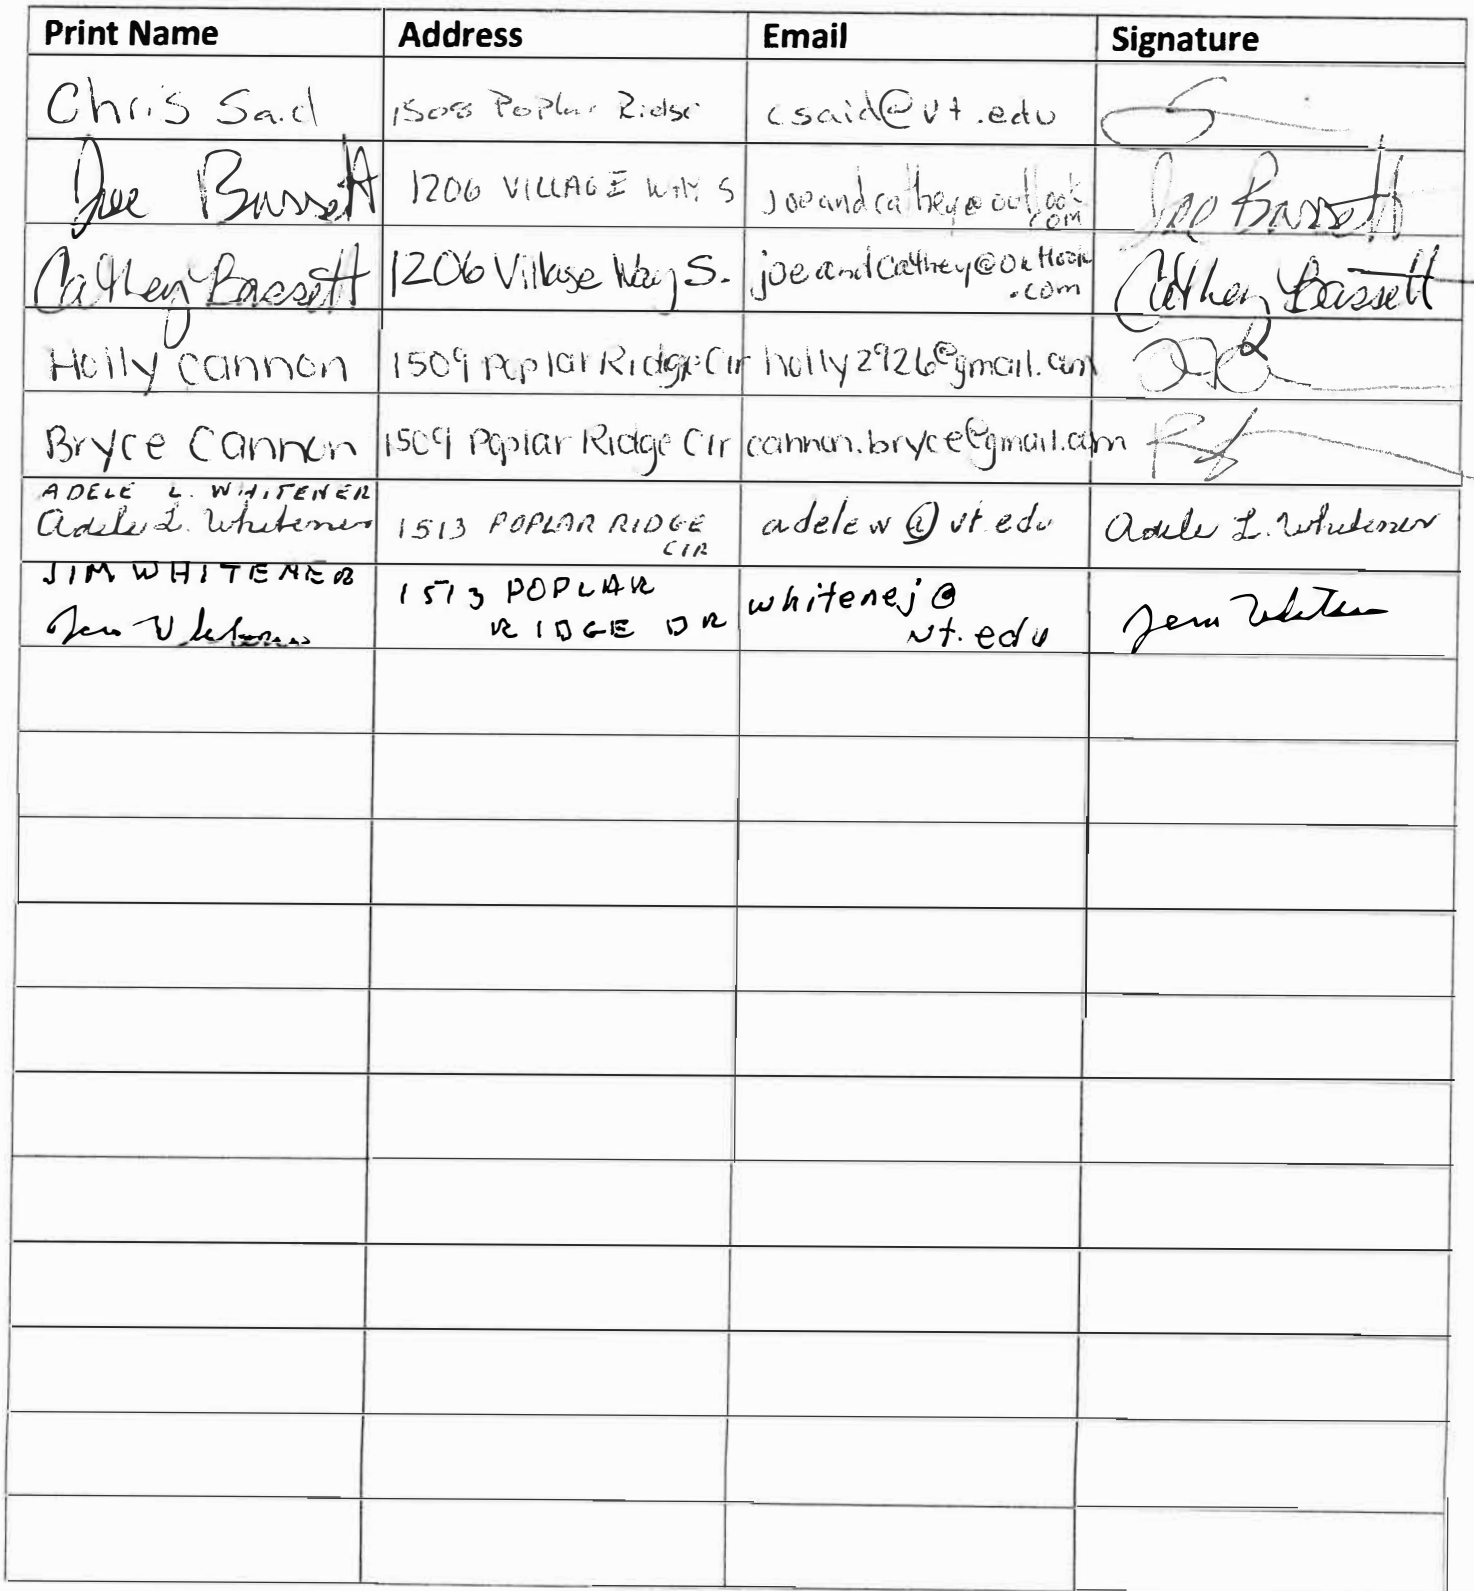 Print Name Address Email Signature
Chris Said 1508 Poplar Ridge csaid@vt.edu
Joe Bassett 1206 VILLAGE WAY S joeandcathey@outlook Joe Bassett
.com
Cathey Bassett 1206 Village Way S. joeandcathey@outlook Cathey Bassett
.com
Holly Cannon 1509 Poplar Ridge Cir holly2926@gmail.com
Bryce Cannon 1509 Poplar Ridge Cir cannon.bryce@gmail.com
ADELE L. WHITENER
Adele L. Whitener 1513 POPLAR RIDGE adelew@vt.edu Adele L. Whitener
CIR
JIM WHITENER 1513 POPLAR whitenej@
Jim Whitener RIDGE DR vt.edu Jim Whitener